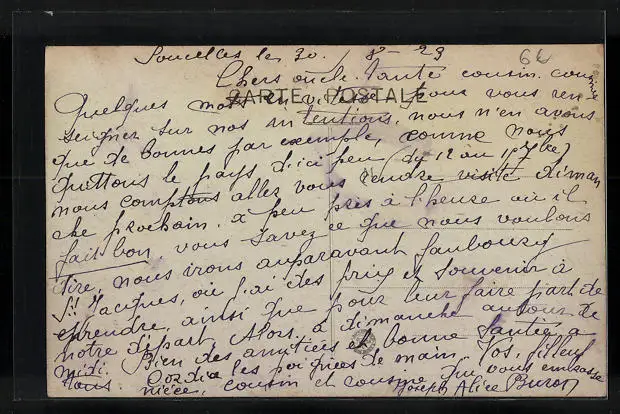 Soucelles le 30 / 8 - 29
66
Chers oncle. Tante cousin. cousine
CARTE POSTALE
Quelques mots en vitesse pour vous ren
seigner sur nos intentions, nous n'en avons
que de bonnes par exemple, comme nous
quittons le pays d'ici peu (du 12 au 7bre)
nous comptons allez vous rendre visite diman
che prochain. à peu près à l'heure où il
fait bon, vous savez ce que nous voulons
dire, nous irons auparavant faubourg
St Jacques, où j'ai des prix et souvenir à
prendre, ainsi que pour leur faire part de
notre départ. Alors, à dimanche autour de
midi. Bien des amitiés et bonne santée à
tous Cordia les poignées de main. Vos, filleul
nièce, cousin et cousine qui vous embrasse
Joseph Alice Buron